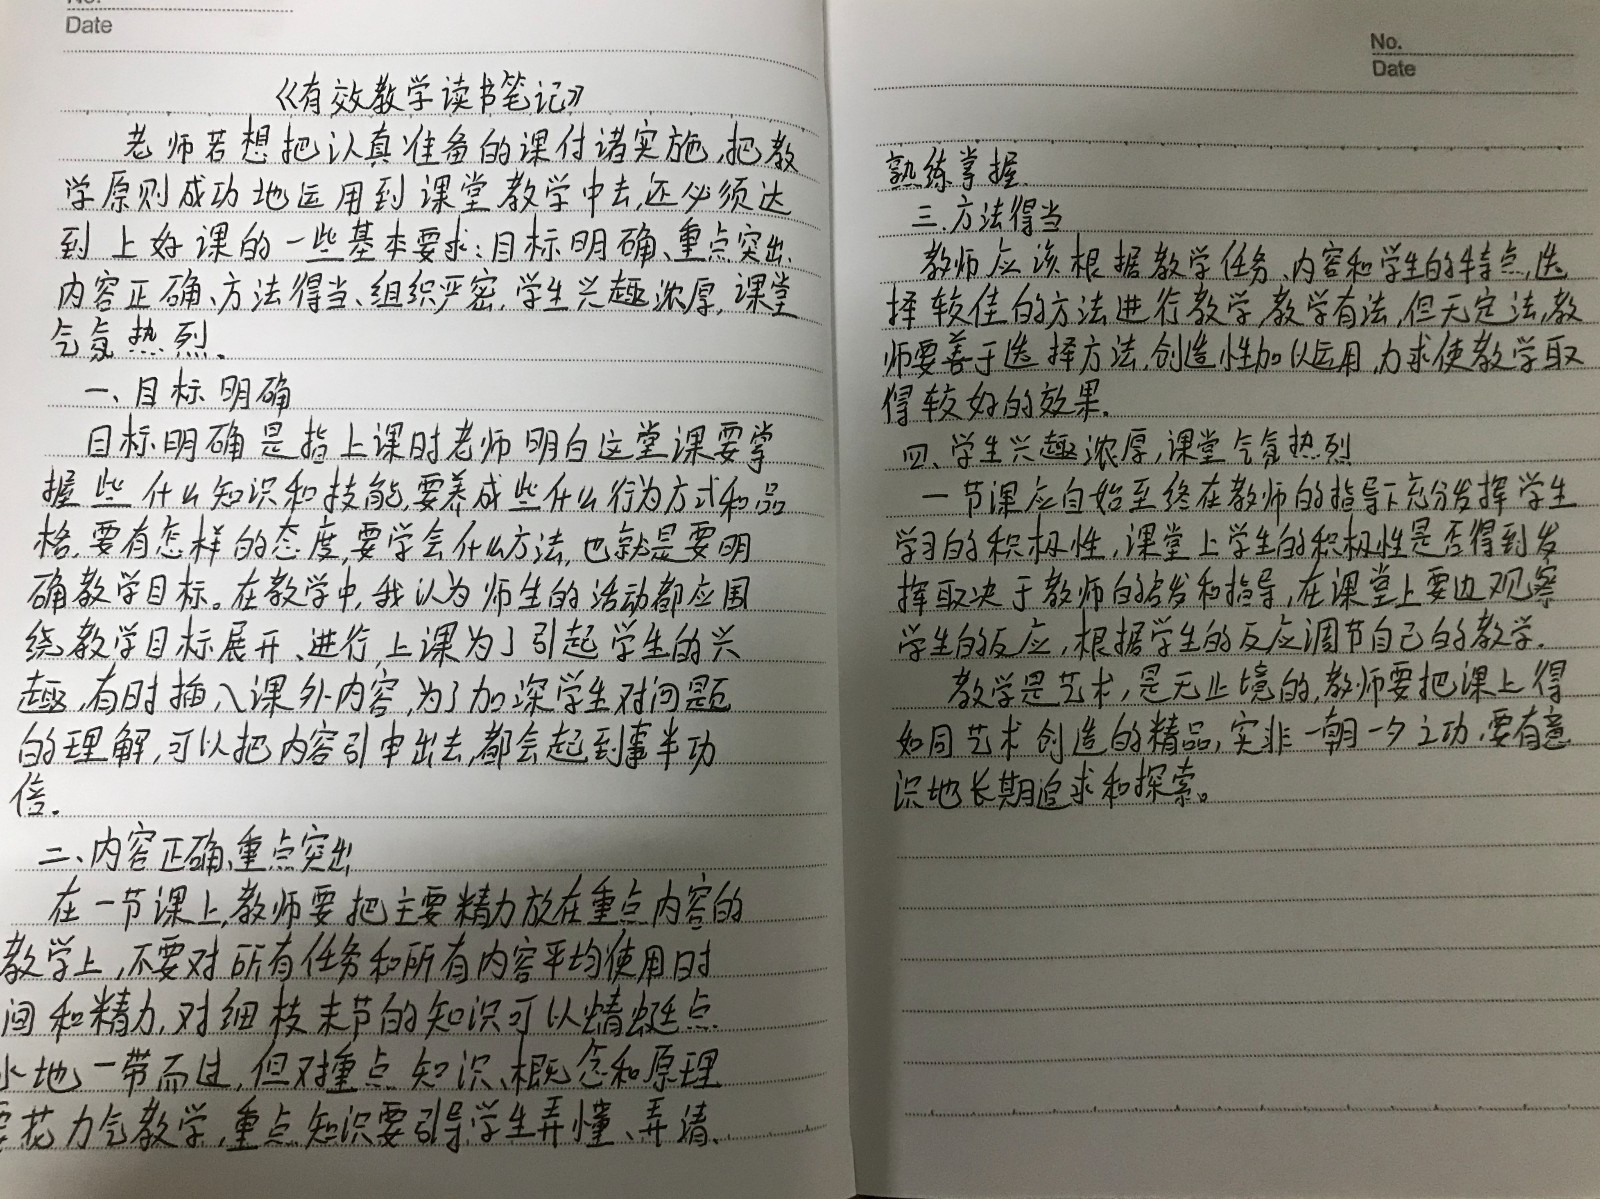 No.
Date
《有效教学读书笔记》
老师若想把认真准备的课付诸实施,把教
学原则成功地运用到课堂教学中去,还必须达
到上好课的一些基本要求:目标明确、重点突出、
内容正确、方法得当、组织严密,学生兴趣浓厚,课堂
气氛热烈.
一、目标明确
目标明确是指上课时老师明白这堂课要掌
握些什么知识和技能,要养成些什么行为方式和品
格,要有怎样的态度,要学会什么方法,也就是要明
确教学目标。在教学中,我认为师生的活动都应围
绕教学目标展开、进行,上课为了引起学生的兴
趣,有时插入课外内容,为了加深学生对问题
的理解,可以把内容引申出去,都会起到事半功
倍.
二、内容正确、重点突出
在一节课上,教师要把主要精力放在重点内容的
教学上,不要对所有任务和所有内容平均使用时
间和精力,对细枝末节的知识可以蜻蜓点
水地一带而过,但对重点知识、概念和原理
要花力气教学,重点知识要引导学生弄懂、弄清、
No.
Date
熟练掌握.
三.方法得当
教师应该根据教学任务、内容和学生的特点,选
择较佳的方法进行教学,教学有法,但无定法,教
师要善于选择方法,创造性加以运用,力求使教学取
得较好的效果.
四、学生兴趣浓厚,课堂气氛热烈
一节课应自始至终在教师的指导下充分发挥学生
学习的积极性,课堂上学生的积极性是否得到发
挥取决于教师的启发和指导,在课堂上要边观察
学生的反应,根据学生的反应调节自己的教学.
教学是艺术,是无止境的,教师要把课上得
如同艺术创造的精品,实非一朝一夕之功,要有意
识地长期追求和探索。